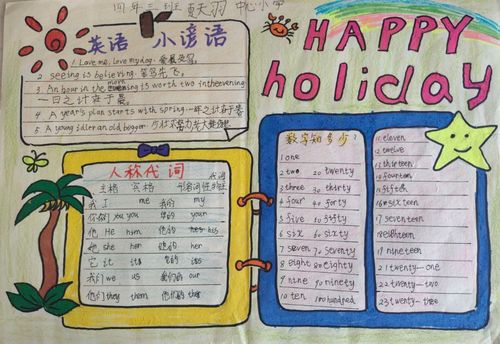 四年三班 夏天羽 中心小学
HAPPY
holiday
英语 小谚语
1. Love me, love my dog. 爱屋及乌.
2 seeing is believing.
3 An hour in the morn is worth two in the evening
一日之计在于晨.
4 A year's plan starts with spring. 一年之计在于春
5 A young idler an old beggar 少壮不努力老大徒伤悲
人称代词
主格 宾格
我 I me 我的 my
你(们) you you 你的 your
他 He him 他的 his
她 she her 她的 her
它 it its 它的 its
我们 we us 我们的 our
他们 they them 他们的 their
数字知多少?
1 one
2 two 20 twenty
3 three 30 thirty
4 four 40 forty
5 five 50 fifty
6 six 60 sixty
7 seven 70 seventy
8 eight 80 eighty
9 nine 90 ninety
10 ten 100 hundped
11 eleven
12 twelve
13 thirteen
14 fourteen
15 fifteen
16 sixteen
17 seventeen
18 eighteen
19 nineteen
21 twenty-one
22 twenty-two
23 twenty-three